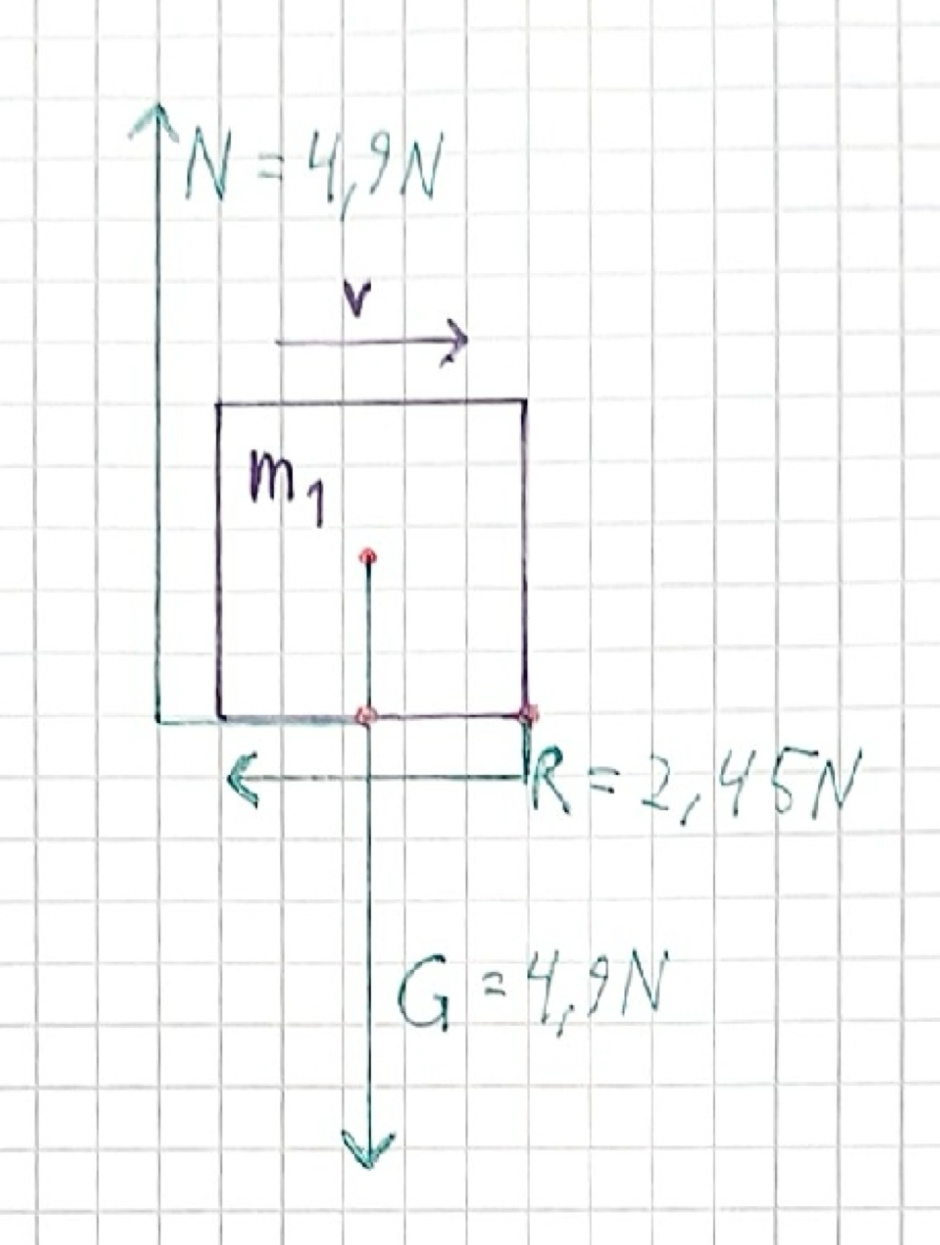 N = 4,9N
v
m₁
R = 2,45N
G = 4,9N